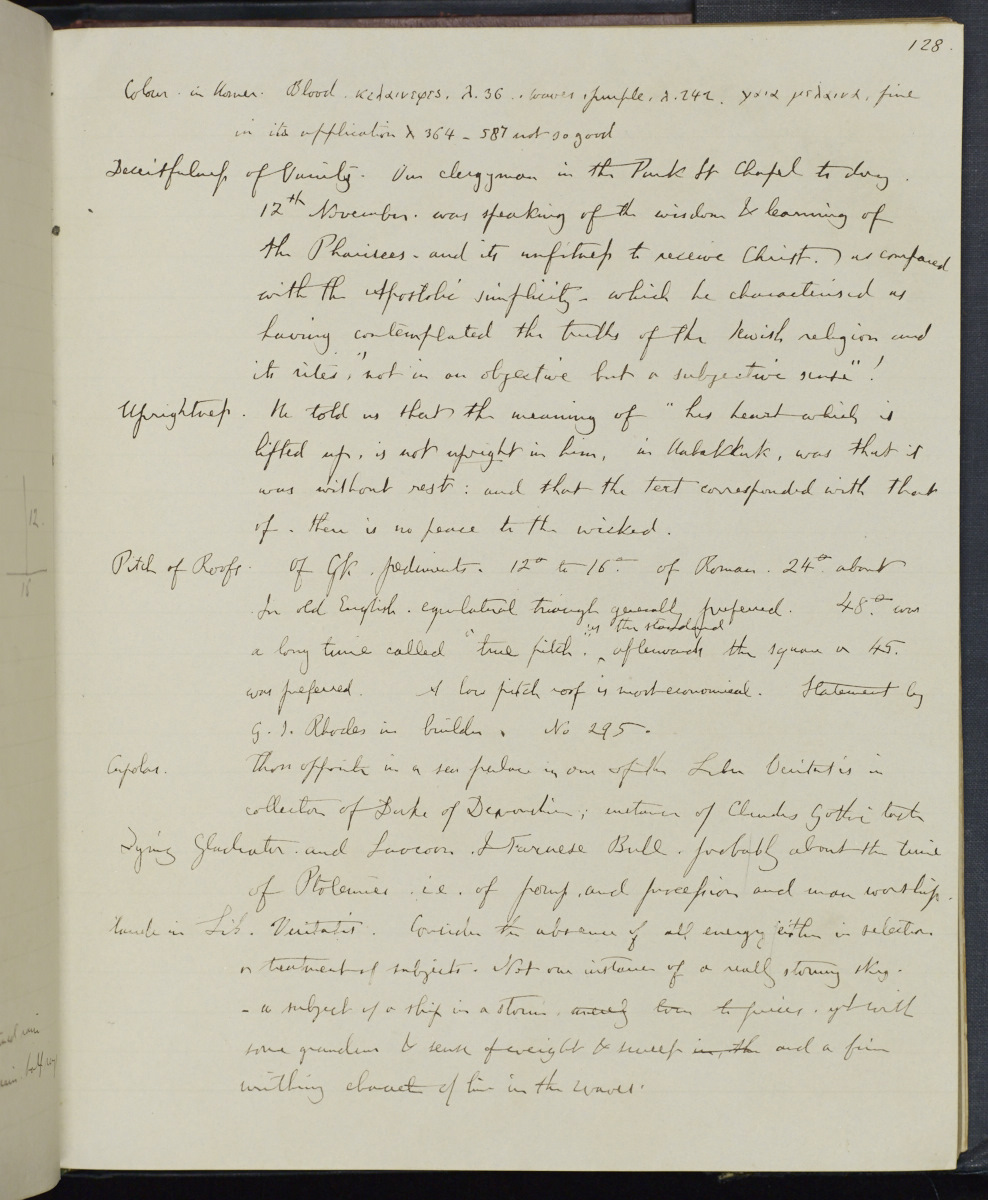 128.
Colour in Homer. Blood κελαινεφες, λ. 36. waves, purple, λ. 242. γαια μελαινα, fine
in its application λ 364 - 587 not so good
Deceitfulness of Vanity. Our clergyman in the Park St Chapel to day
12th November. was speaking of the wisdom & learning of
the Pharisees - and its unfitness to receive Christ. as compared
with the Apostolic simplicity - which he characterised as
having contemplated the truths of the Jewish religion and
its rites, "not in an objective but a subjective sense"!
Uprightness. He told us that the meaning of "his heart which is
lifted up, is not upright in him, in Habakkuk, was that it
was without rest: and that the text corresponded with that
of - there is no peace to the wicked.
Pitch of Roofs. Of Gk. pediments. 12° to 16°. of Roman. 24° about
In old English. equilateral triangle generally preferred. 48° was
as the standard
a long time called "true pitch. afterwards the square or 45.
was preferred. A low pitch roof is most economical. Statement by
G. J. Rhodes in builder. No 295.
Cupolas. Those opposite in a sea palace in one of the Liber Veritatis in
collection of Duke of Devonshire; instance of Claudes Gothic taste
Dying Gladiator. and Laocoon. & Farnese Bull. probably about the time
of Ptolemies. i.e. of pomp, and procession and man worship.
Claude in Lib. Veritatis. Consider the absence of all energy either in selection
or treatment of subjects. Not one instance of a really stormy sky.
- a subject of a ship in a storm, torn to pieces. yet with
some grandeur & sense of weight & sweep in, the and a fine
writhing charact of line in the waves.
12.